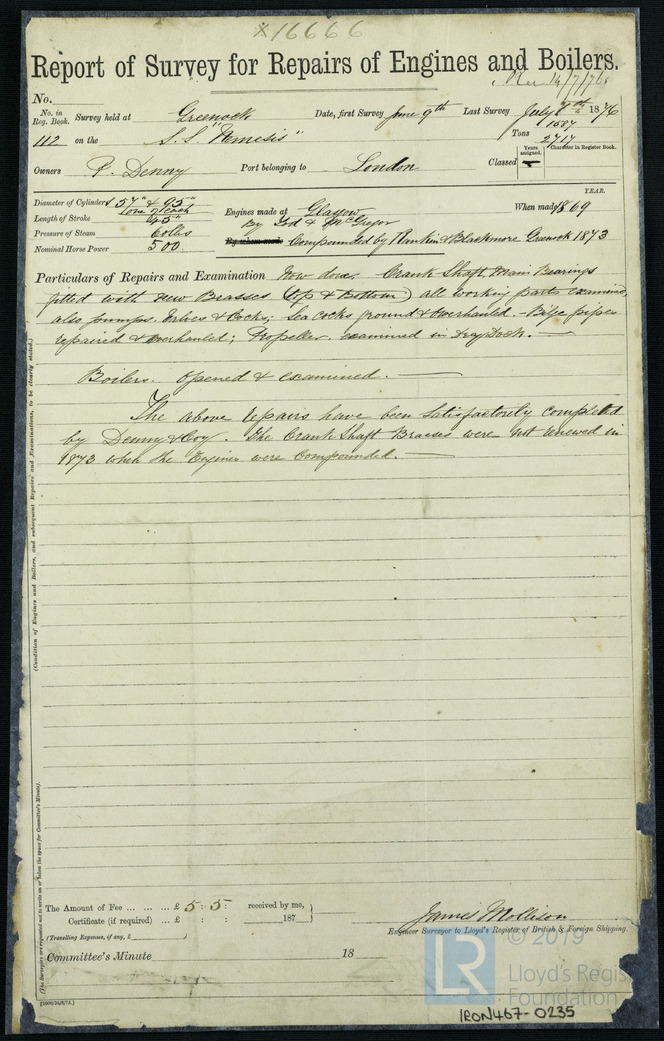 ×16666
Report of Survey for Repairs of Engines and Boilers.
14/7/76
No.
No. in Reg. Book. Survey held at Greenock Date, first Survey June 9th Last Survey July 8th 1876
112 on the S.S. "Nemesis" Tons 1587 2717
Years assigned. Character in Register Book.
Owners P. Denny Port belonging to London Classed
YEAR.
Diameter of Cylinders 57" & 95"
one of each
Length of Stroke 45"
Pressure of Steam 60 lbs
Nominal Horse Power 500
Engines made at Glasgow When made 1869
By Tod & McGregor
By whom made Compounded by Rankin & Blackmore Greenock 1873
Particulars of Repairs and Examination Now done. Crank Shaft, Main Bearings
fitted with new Brasses (top & Bottom) all working parts examined,
also pumps, Valves & Cocks; Sea Cocks ground & overhauled. – Bilge pipes
repaired & overhauled; Propeller examined in Dry Dock. —
Boilers. Opened & examined. —
The above repairs have been Satisfactorily completed
by Denny & Coy. The Crank Shaft Brasses were not renewed in
1873 when the Engines were Compounded. —
(Condition of Engines and Boilers, and subsequent Repairs and Examinations, to be clearly stated.)
(The Surveyors are requested not to write on or below the space for Committee's Minute.)
The Amount of Fee ... ... ... £ 5 : 5 : received by me,
Certificate (if required) ... £ : : 187
(Travelling Expenses, if any, £ )
James Mollison
Engineer Surveyor to Lloyd's Register of British & Foreign Shipping.
Committee's Minute 18
LR
© 2019
Lloyd's Regis
Foundation
IRON467-0235